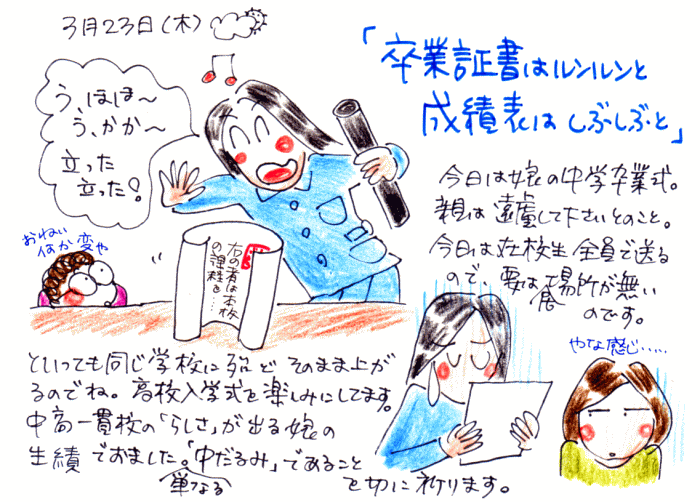 3月23日(木)
「卒業証書はルンルンと
成績表は しぶしぶと」
う、ほほ〜
う、かか〜
立った
立った!
おねい
何か変や
右の者は本校
の課程を…
今日は娘の中学卒業式。
親は遠慮して下さいとのこと。
今日は在校生全員で送る
ので、要は場所が無い
のです。
やな感じ……
といっても同じ学校にほとんど そのまま上が
るのでね。高校入学式を楽しみにしてます。
中高一貫校の「らしさ」が出る娘の
生績でおました。「中だるみ」であること
単なる
を切に祈ります。